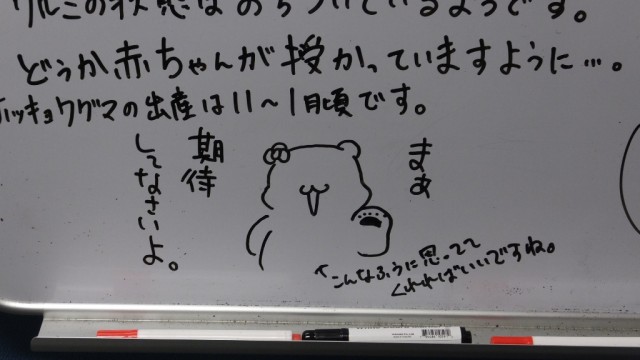 クルミの状態はおちついているようです。
どうか赤ちゃんが授かっていますように…。
ホッキョクグマの出産は11～1月頃です。
まぁ
期待
してなさいよ。
↑こんなふうに思ってて
くれればいいですね。